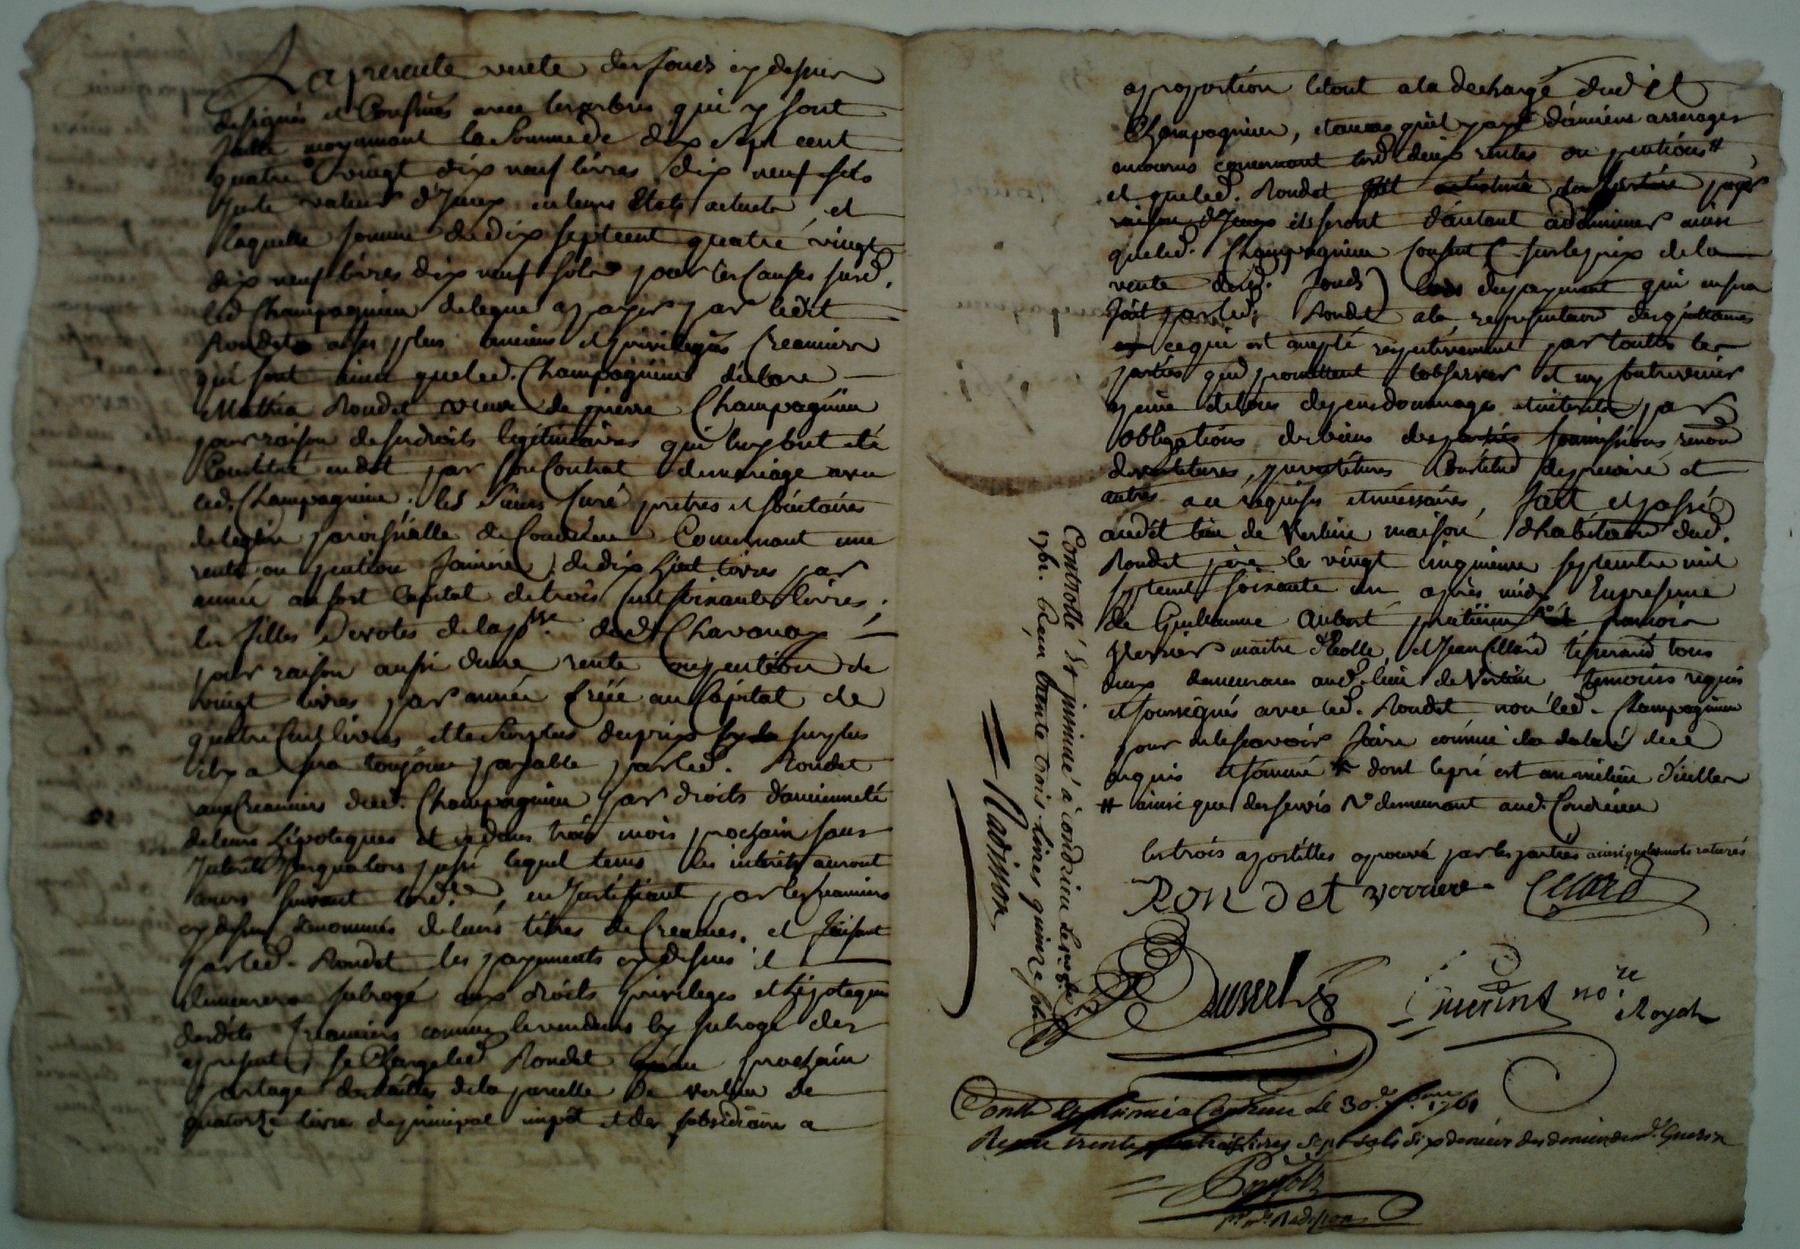 La presente vente des fonds cy dessus
designés et Confinés avec les arbres qui y sont
faitte moyennant la Somme de dix sept cent
quatre vingt dix neuf livres dix neuf sols
Juste valeur d'Iceux en leurs Etats actuels, et
laquelle somme de dix sept cent quatre vingt
dix neuf livres dix neuf sols pour les Causes susd.
led Champagnieu delegue a payer par ledit
Rondet a ses plus anciens et privilegiés Creanciers
qui sont ainsi que led. Champagnieu declare
Mathia Rondet veuve de pierre Champagnieu
pour raison de ses droits legitimaires qui luy ont été
Constitué en dot par son Contrat de mariage avec
led. Champagnieu. les Sieurs Curé pretres et sociétaires
de leglise paroissialle de Condrieu Concernant une
rente ou pention fonciere de dix huit livres par
année au fort Capital de trois Cent soixante livres.
les filles devotes de la psse. de St Chavanay
pour raison aussi d'une rente ou pention de
vingt livres par année Créée au Capital de
quatre Cent livres et le Surplus du prix surplus
il y a sera toujour payable par led. Rondet
aux Creanciers dud. Champagnieu par droits d'ancienneté
de leurs hipoteques et ce dans trois mois prochain sans
Interets Jusqua lors passé lequel tems les interets auront
cours suivant lord.ce, en Justifiant par les Creanciers
cy dessus denommés de leurs titres de Creances. et faisant
par led. Rondet les payements cy dessus il
demeurera subrogé aux droits privileges et hipoteques
desdits Creanciers comme le vendeur ly subroge des
a present, se Charge led. Rondet prochain
partage des tailles de la parcelle de Verlieu de
quatorze livres de principal impot et des subsidiaires a
aproportion letout a la decharge dud. St
Champagnieu, et au cas qu'il paye d'anciens arrerages
encourus concernant lesd. deux rentes ou pentions #
et que led. Rondet payé
raison d'Iceux ils seront d'autant a diminuer ainsi
que led. Champagnieu Consent sur le prix de la
vente desd. fonds du payement qui en sera
fait par led. Rondet a la representaon des quittances
ce qui est accepté respectivement par touttes les
parties qui promettent l'observer et ny contrevenir
a peine de tous depens dommages et interets par
obligations de biens des parties soumissions renon
devetitures, investitures Constitut de precaire et
autres a ce requises et necessaires, fait et passé
audit lieu de Verlieu maison d'habitaon dud.
Rondet père le vingt cinquieme septembre mil
sept cent soixante un après midy En presence
de Guillaume Aubert praticien N° et françois
Verrier maitre d'Ecolle, et Jean Cellard tisserand tous
deux demeurans aud. lieu de Verlieu temoins requis
et soussignés avec led. Rondet non led. Champagnieu
pour ne le scavoir faire comme il a declaré de ce
enquis et sommé * dont le pré est au milieu d'icelles
# ainsi que des servis N° demeurant aud. Condrieu
les trois apostilles aprouvé par les parties ainsi que les mots raturés
Rondet Verriere Cellard
Guerins no.re
Royal
Controllé & insinué a condrieu le
1761. Recu trente trois livres quinze sols
Radisson
Contr. et insinué a Condrieu le 30.e 7bre 1761
Recu trente trois livres sept sols six deniers des deniers de m.e Guerin
Radisson